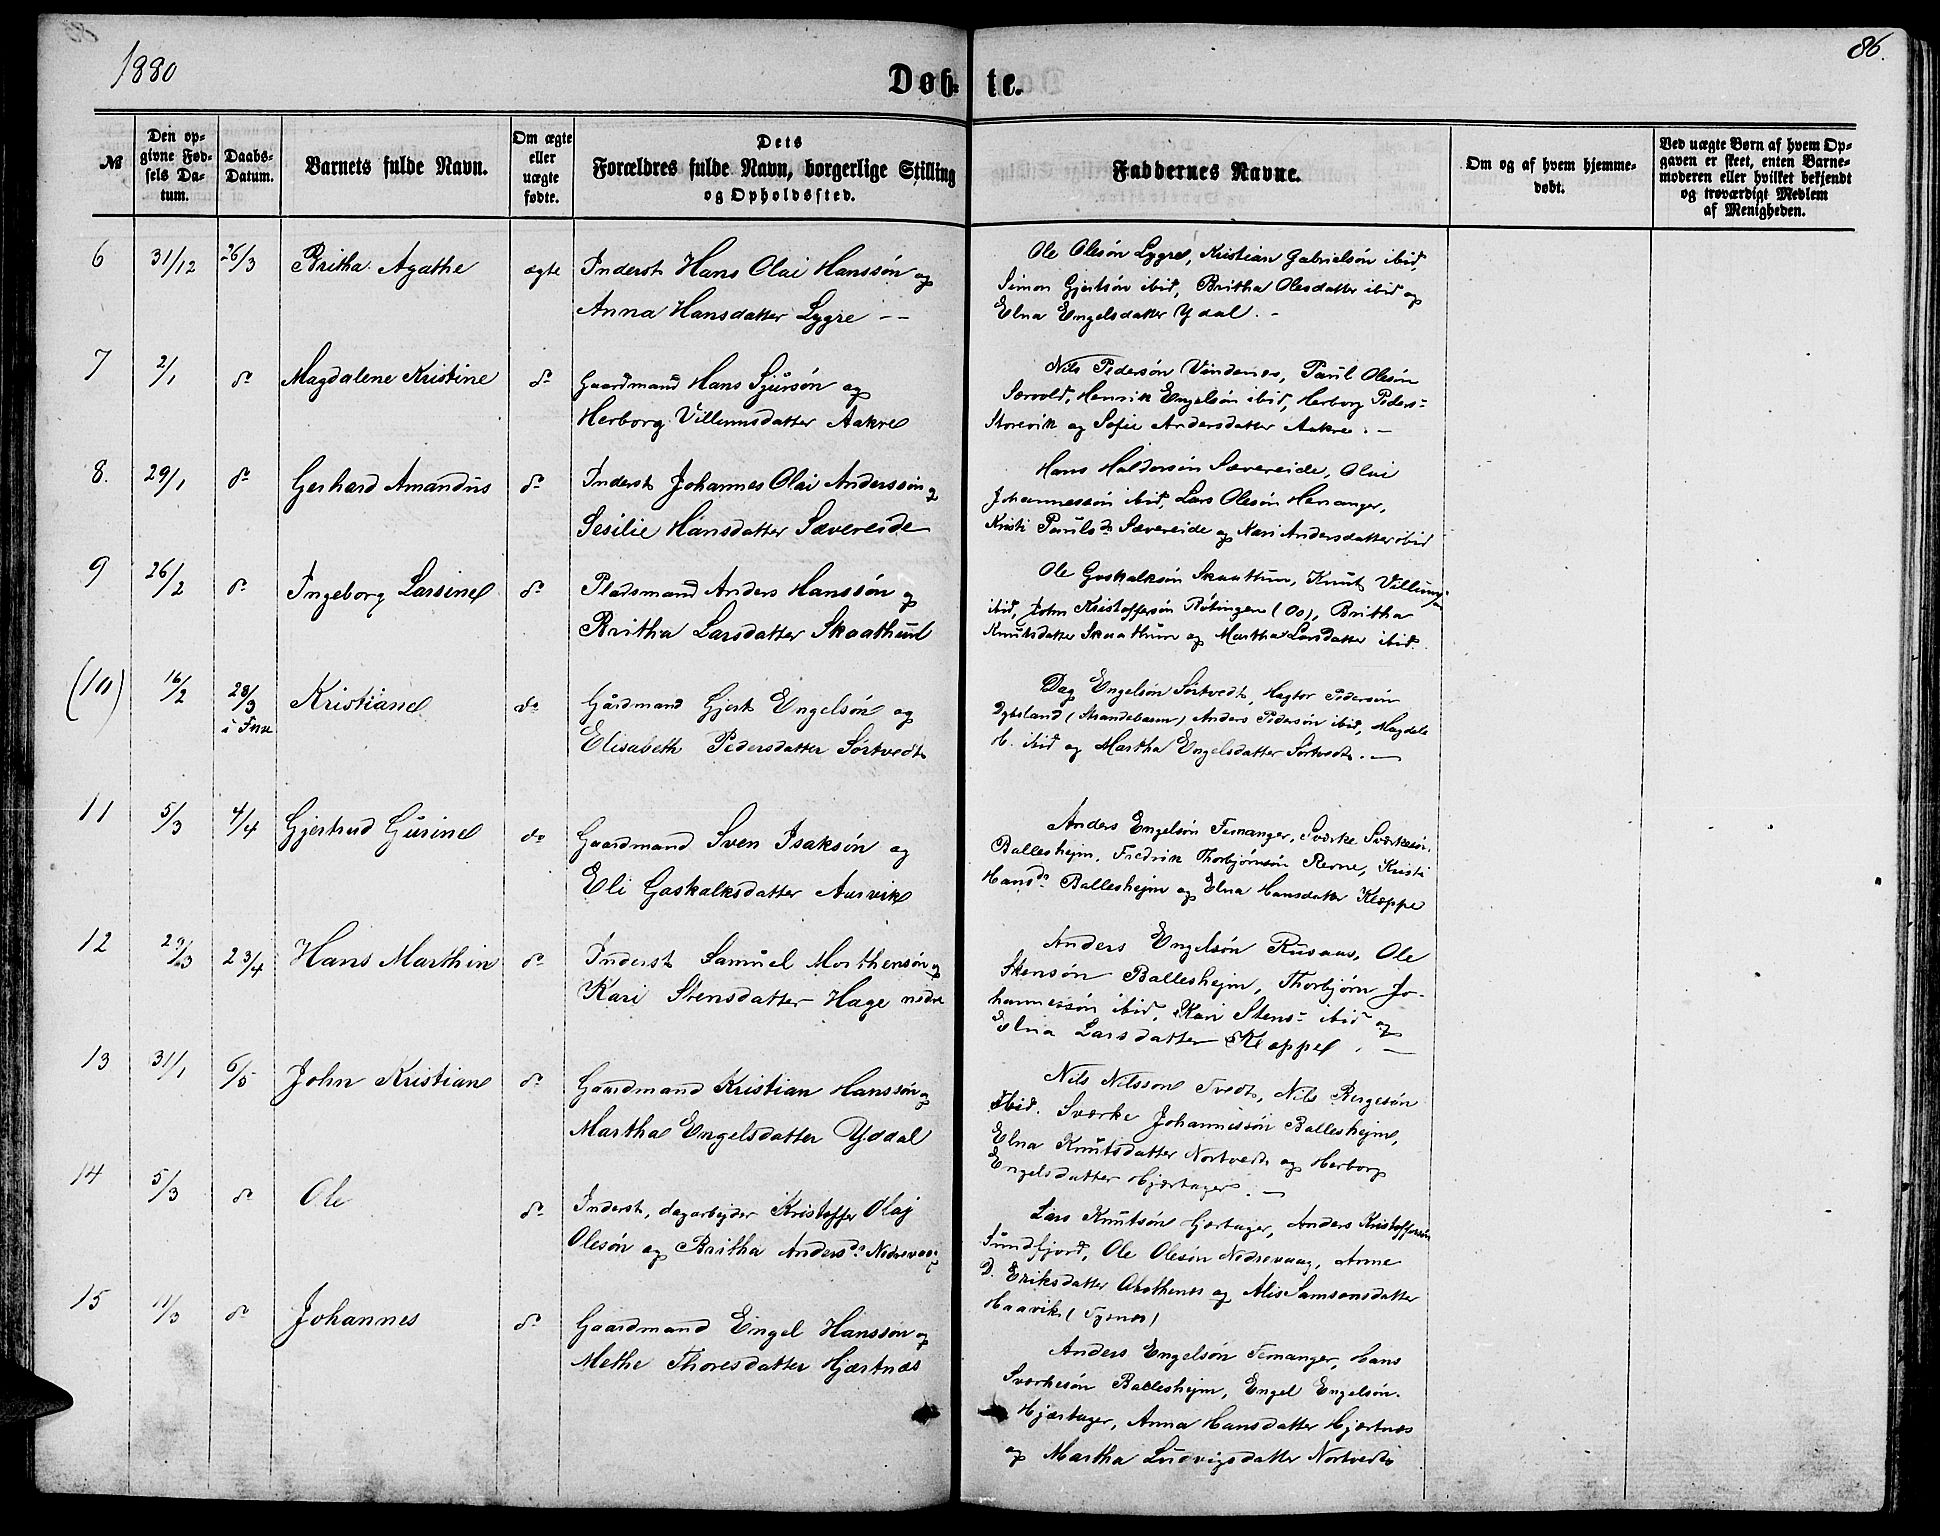 1880
Døb- te.
86.
№
Den opgivne Fødsels Datum.
Daabs-Datum.
Barnets fulde Navn.
Om ægte eller uægte fødte.
Dets Forældres fulde Navn, borgerlige Stilling og Opholdssted.
Faddernes Navne.
Om og af hvem hjemmedøbt.
Ved uægte Børn af hvem Opgaven er skeet, enten Barnemoderen eller hvilket bekjendt og troværdigt Medlem af Menigheden.
6 31/12 26/3 Britha Agathe ægte Inderst Hans Olai Hanssøn og
Anna Hansdatter Lygre --
Ole Olesøn Lygre, Kristian Gabrielsøn ibid,
Simon Gjertsøn ibid, Britha Olesdatter ibid og
Elna Engelsdatter Ydal. -
7 2/1 do Magdalene Kristine do Gaardmand Hans Sjursøn og
Herborg Villumsdatter Aakre
Nils Pedersøn Vindenes, Paul Olesøn
Sævold, Henrik Engelsøn ibid, Herborg Peders-
Storevik og Sofie Andersdatter Aakre. -
8. 29/1 do Gerhard Amandus do Inderst Johannes Olai Anderssøn og
Sesilie Hansdatter Sævereide
Hans Haldorsøn Sævereide, Olai
Johannessøn ibid, Lars Olesøn Henanger,
Kristi Paulsdr Sævereide og Kari Andersdatter ibid
9 26/2 do Ingeborg Larsine do Pladsmand Anders Hanssøn og
Britha Larsdatter Skaathun
Ole Goskalksøn Skaathun, Knut
ibid, John Kristoffersøn Røtingen (Os), Britha
Knutsdatter Skaathun og Martha Larsdatter ibid.
(10) 16/2 28/3 i Kristiane do Gårdmand Gjert Engelsøn og
Elisabeth Pedersdatter Sørtvedt
Dag Engelsøn Sørtvedt, Hagtor Pedersøn
(Strandebarm) Anders Pedersøn ibid, Magdele
H. ibid og Martha Engelsdatter Sørtvedt. -
11 5/3 4/4 Gjertrud Gurine do Gaardmand Sven Isaksøn og
Eli Goskalksdatter Aarvik
Anders Engelsøn Femanger, Sværke Sværkesøn
Ballesheim, Fredrik Thorbjørnsøn Revne, Kristi
Hansdr Ballesheim og Elna Hansdatter Kleppe
12 29/3 23/4 Hans Marthin do Inderst Samuel Morthensøn og
Kari Stensdatter Hage nedre
Anders Engelsøn Rusaas, Ole
Stensøn Ballesheim, Thorbjørn Jo-
hannessøn ibid, Kari Stens- ibid og
Elna Larsdatter Kleppe. -
13 31/1 6/5 John Kristian do Gaardmand Kristian Hanssøn og
Martha Engelsdatter Yddal
Nils Nilsson Tvedt, Nils Børgesøn
Ibid. Sværke Johannessøn Ballesheim,
Elna Knutsdatter Nortvedt og Herborg
Engelsdatter Hjærtager. -
14 5/3 do Ole do Inderst, dagarbejder Kristoffer Olaj
Olesøn og Britha Andersdr Nedrevaag
Lars Knutsøn Hjærtager, Anders Kristoffersøn
Sundfjord, Ole Olesøn Nedrevaag, Anne
D. Eriksdatter og Alis Samsonsdatter
Haavik (Tysnes)
15 11/3 do Johannes do Gaardmand Engel Hanssøn og
Methe Thoresdatter Hjærtnæs
Anders Engelsøn Femanger, Hans
Sværkesøn Ballesheim, Engel Engelsøn
Hjærtager, Anna Hansdatter Hjærtnæs
og Martha Ludvigsdatter Nortvedt